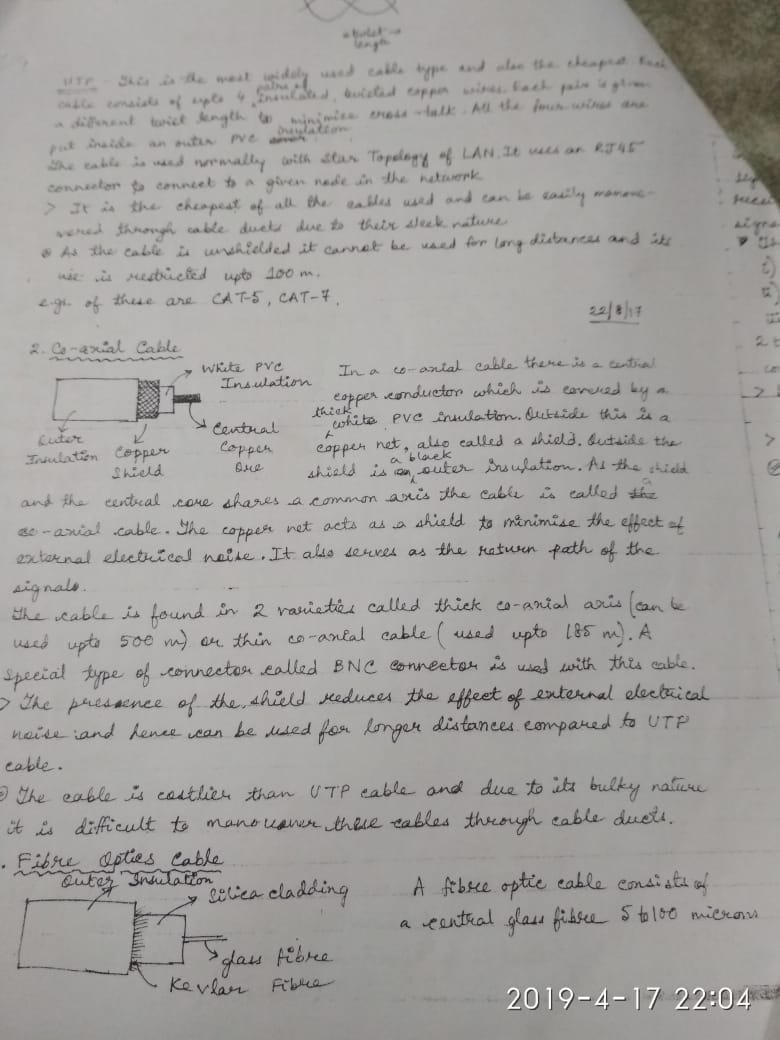 twist
length
UTP - This is the most widely used cable type and also the cheapest. Each
cable consists of upto 4 pairs of insulated, twisted copper wires. Each pair is given
a different twist length to minimise cross-talk. All the four wires are
put inside an outer PVC insulation
The cable is used normally with Star Topology of LAN. It uses an RJ45
connector to connect to a given node in the network
> It is the cheapest of all the cables used and can be easily manoeu-
vered through cable ducts due to their sleek nature
As the cable is unshielded it cannot be used for long distances and its
use is restricted upto 100 m.
e.gs. of these are CAT-5, CAT-7.
22/8/17
2. Co-axial Cable
White PVC
Insulation
Outer
Insulation
Copper
Shield
Central
Copper
Ore
In a co-axial cable there is a central
copper conductor which is covered by a
thick white PVC insulation. Outside this is a
copper net, also called a shield. Outside the
shield is a black outer insulation. As the shield
and the central core shares a common axis the cable is called a
co-axial cable. The copper net acts as a shield to minimise the effect of
external electrical noise. It also serves as the return path of the
signals.
The cable is found in 2 varieties called thick co-axial axis (can be
used upto 500 m) or thin co-axial cable (used upto 185 m). A
special type of connector called BNC connector is used with this cable.
> The presence of the shield reduces the effect of external electrical
noise and hence can be used for longer distances compared to UTP
cable.
The cable is costlier than UTP cable and due to its bulky nature
it is difficult to manouever these cables through cable ducts.
. Fibre Optics Cable
Outer Insulation
Silica cladding
glass fibre
Kevlar Fibre
A fibre optic cable consists of
a central glass fibre 5 to 100 microns
2019-4-17 22:04